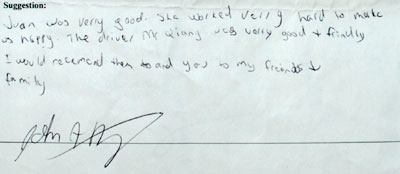 Suggestion:
Juan was verry good. She worked verry hard to make
us happy. The driver Mr Qiang was verry good + frindly
I would recemend them to and you to my freinds +
family